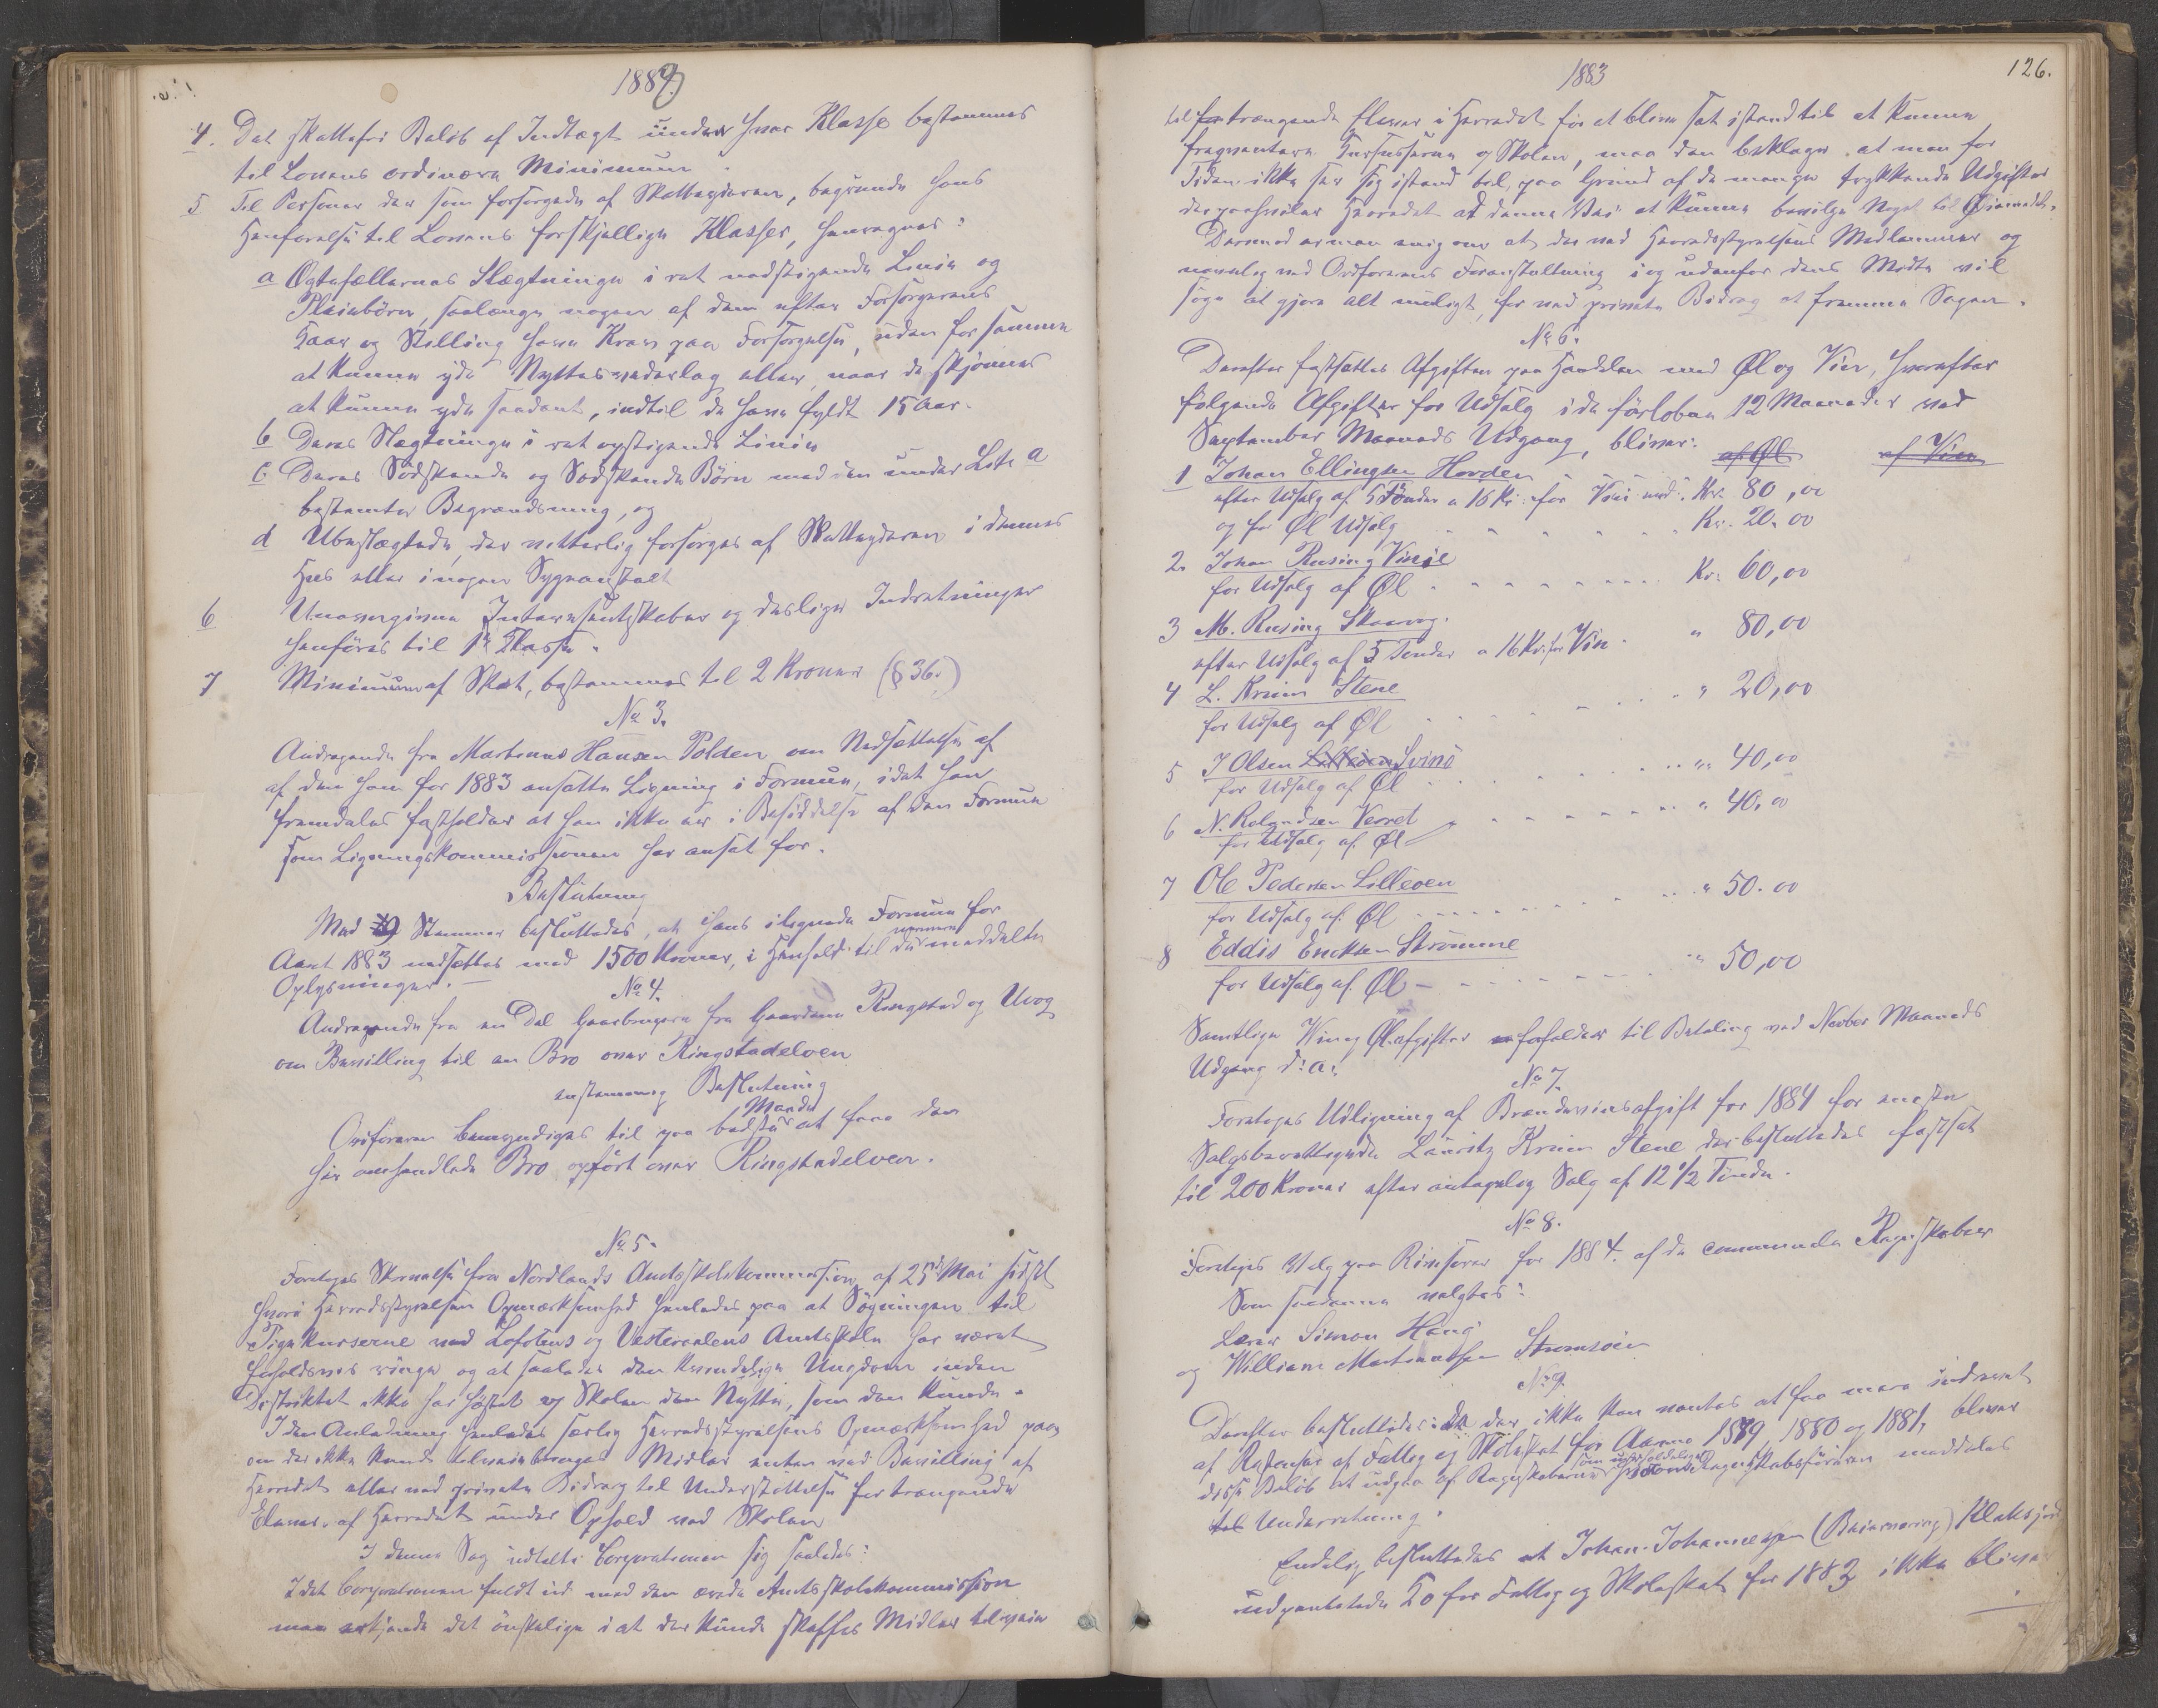 1883
4. Det skattefri Beløb af Indtægt under hver Klasse bestemmes
til Lovens ordinære Minimum.
5 Til Personer der som forsørgede af Skatteyderen, begrunde hans
Henførelse til Lovens forskjellige Klasser, henregnes:
a Ægtefællernes Slægtninge i ret nedstigende Linie og
Pleiebörn, saalænge nogen af dem efter Forsørgerens
Kaar og Stilling have Krav paa Forsørgelse, uden for samme
at kunne yde Nyttesvederlag eller, naar de skjønnes
at kunne yde saadant, indtil de have fyldt 15 Aar.
b Deres Slægtninge i ret opstigende Linie
c Deres Södskende og Södskende Börn med den under Litr a
bestemte Begrændsning, og
d Ubeslægtede, der vitterlig forsørges af Skatteyderen i dennes
Hus eller i nogen Sygeanstalt
6 Unavngivne Interessentskaber og deslige Indretninger
henföres til 1ste Klasse.
7 Minimum af Skat, bestemmes til 2 Kroner (§ 36.)
No 3.
Andragende fra Martinus Hansen Polden om Nedsættelse af
af den ham for 1883 ansatte Ligning i Formue, idet han
fremdeles fastholder at han ikke er i Besiddelse af den Formue
som Ligningskommissionen har ansat for.
Beslutning
Med 9 Stemmer besluttedes, at hans ilignede Formue for
Aaret 1883 nedsættes med 1500 Kroner, i Henhold til de nærmere meddelte
Oplysninger.
No 4.
Andragende fra en Del Gaardbrugere fra Gaardene Ringstad og Uvaag
om Bevilling til en Bro over Ringstadelven
enstemmig Beslutning
Ordføreren bemyndiges til paa bedste Maade at faae den
her omhandlede Bro opfört over Ringstadelven.
No 5.
Foretoges Skrivelse fra Nordlands Amtsskolekommission af 25de Mai sidstl
hvori Herredsstyrelsens Opmærksomhed henledes paa at Søgningen til
Pigekurserne ved Lofotens og Vesteraalens Amtsskole har været
forholdsvis ringe og at saaledes den kvindelige Ungdom inden
Distriktet ikke har höstet af Skolen den Nytte, som den kunde.
I den Anledning henledes særlig Herredsstyrelsens Opmærksomhed paa
om der ikke kunde tilveiebringes Midler enten ved Bevilling af
Herredet eller ved private Bidrag til Understøttelse for trængende
Elever af Herredet under Ophold ved Skolen
I denne Sag udtalte Corporationen sig saaledes:
Idet Corporationen fuldt ud med den ærede Amtsskolekommission
maa erkjende det ønskelige i at der kunde skaffes Midler tilveie
1883
126.
til trængende Elever i Herredet for at blive sat istand til at kunne
frequentere Kursusserne og Skolen, maa den beklage at man for
Tiden ikke ser sig istand til, paa Grund af de mange trykkende Udgifter
der paahviler Herredet at denne Vei at kunne bevilge Noget til Øiemedet.
Dermed er man enig om at der ved Herredsstyrelsens Medlemmer og
navnlig ved Ordførerens Foranstaltning i og udenfor dens Møder vil
søge at gjøre alt muligt, for ved private Bidrag at fremme Sagen.
No 6.
Derefter fastsattes Afgiften paa Handelen med Øl og Vin, hvorefter
følgende Afgifter for Udsalg i de forløbne 12 Maaneder ved
September Maaneds Udgang, bliver:
af Øl af Vin
1 Johan Ellingsen Hovden
efter Udsalg af 5 Tönder a 16 Kr. for Vin med. Kr. 80,00
og for Øl Udsalg Kr. 20.00
2. Johan Rusing Vinje
for Udsalg af Øl Kr. 60,00
3 M. Rusing Skaarvog.
efter Udsalg af 5 Tønder a 16 Kr. for Vin " 80,00
4 L. Krün Stene
for Udsalg af Øl " 20,00
5 J Olsen Svinö
for Udsalg af Øl " 40,00
6 N. Rolandsen Vesret
for Udsalg af Øl " 40,00
7 Ole Pedersen Lilleöen
for Udsalg af Øl " 50.00
8 Eddis Ericksen Strömme
for Udsalg af Øl " 50,00
Samtlige Vin og Ølafgifter forfalder til Betaling ved Novbr Maaneds
Udgang d: a:
No 7.
Foretoges Udligning af Brændevinsafgift for 1884 for eneste
Salgsberettigede Lauritz Krün Stene der besluttedes fastsat
til 200 Kroner efter antagelig Salg af 12 1/2 Tönde.
No 8.
Foretoges Valg paa Revisorer for 1884. af de communale Regnskaber
Som saadanne valgtes:
Lærer Simon Haug
og William Martinussen Strømsöien
No 9.
Derefter besluttedes: Da der ikke kan ventes at faa mere indrevet
af Restancer af Fattig og Skoleskat for Aarene 1879, 1880 og 1881, bliver
disse Beløb at udgaa af Regnskaberne som uerholdelige hvorom Regnskabsføreren meddeles
til Underretning.
Endelig besluttedes at Johan Johannessen (Beiarværing) Klaksjord
udpantede Ko for Fattig og Skoleskat for 1883 ikke bliver